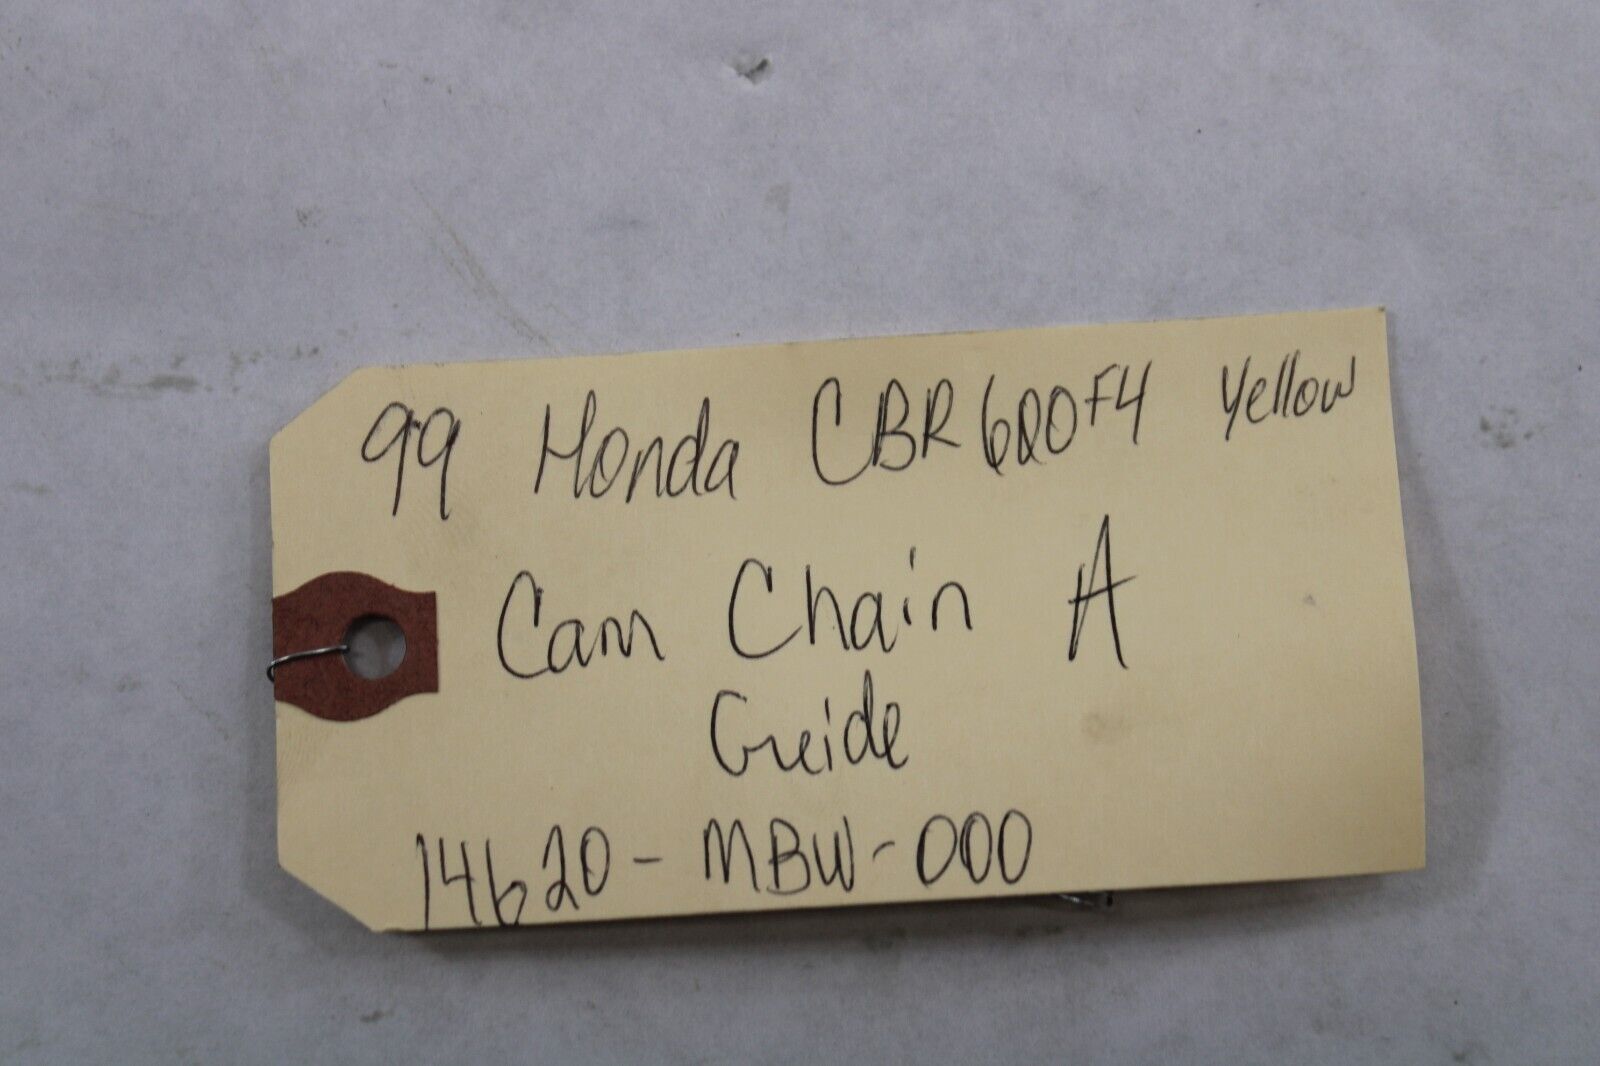 99 Honda CBR600F4 Yellow
Cam Chain A
Guide
14620-MBW-000